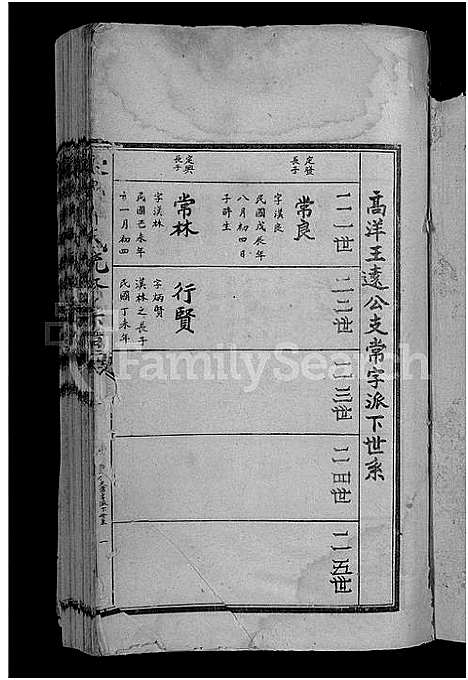 高洋王遠公支常字派下世系
二一世
二二世
二三世
二四世
二五世
定發
長子
常良
字漢良
民國戊辰年
八月初四日
子時生
定興
長子
常林
字漢林
民國己未年
十一月初四
行賢
字炳賢
漢林之長子
民國丁未年
FamilySearch